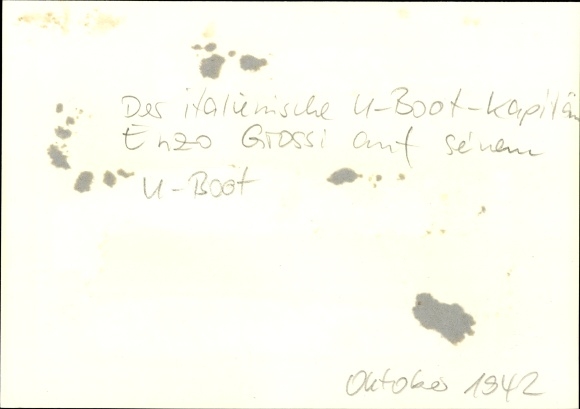 Der italienische U-Boot-Kapitän
Enzo Grossi auf seinem
U-Boot
Oktober 1942